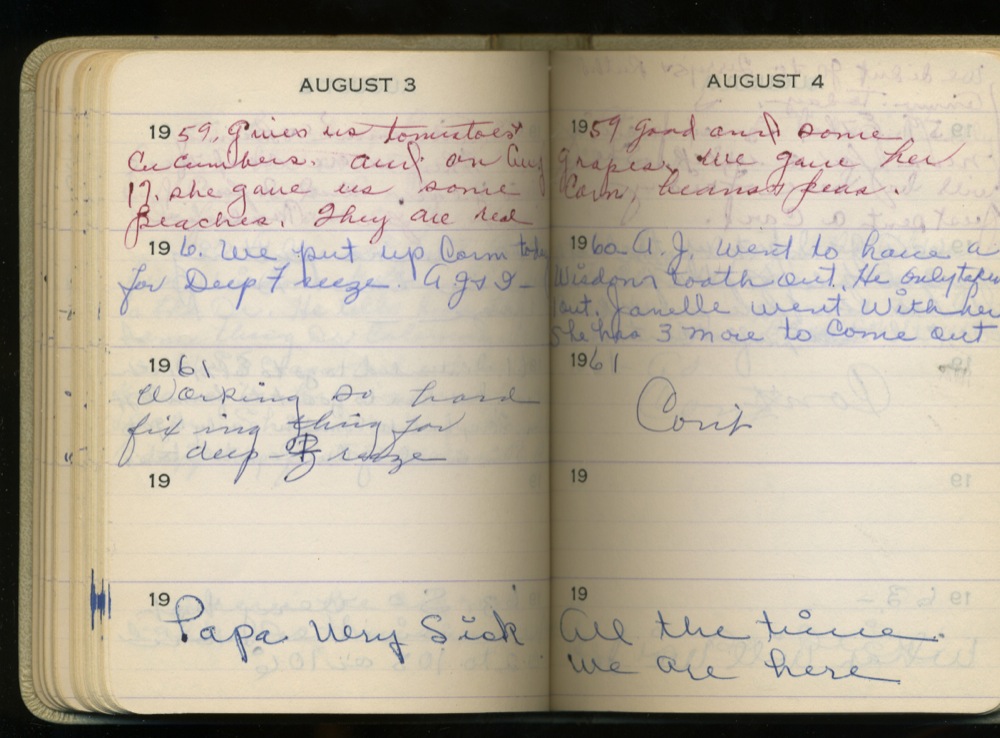 AUGUST 3
1959. Gives us tomatoes
Cucumbers. and on Aug
17. she gave us some
peaches. They are red
196. We put up Corn today
for Deep Freeze. A J & I -
1961
Working so hard
fixing thing for
deep - Freeze
19
19
Papa Very Sick
AUGUST 4
1959 good and some
grapes. We gave her
Corn, beans & peas.
1960 A. J. Went to have a
Wisdom tooth out. He only taken
1 out. Janelle went With her
She has 3 more to Come out
1961
Con't
19
19
All the time.
we are here